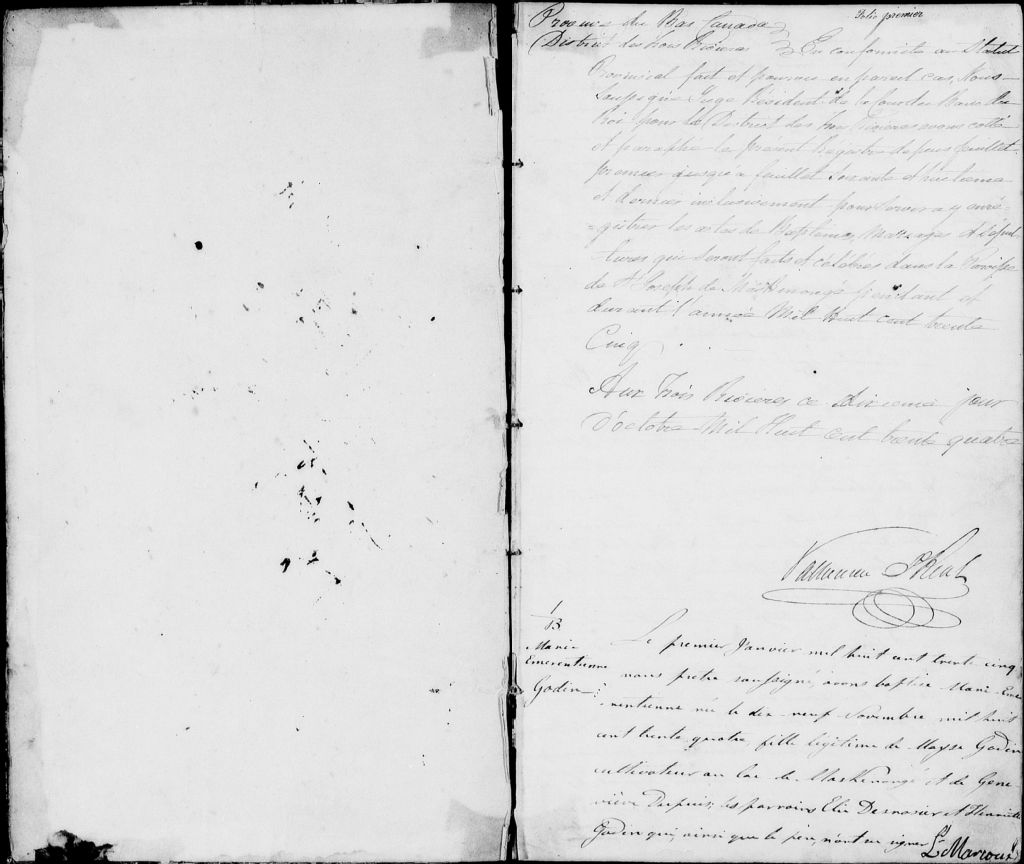 Folio premier
Province du Bas Canada
District des trois Rivieres } En conformité au Statut
Provincial fait et pourvu en pareil cas, Nous
Soussigné Juge Résident de la Cour du Banc du
Roi pour le District des trois Rivieres avons cotté
et paraphé le present Registre depuis feuillet
premier jusqu'a feuillet Soixante et huitieme
et dernier inclusivement pour servir a y enré-
=gistrer les actes de Baptême, Mariages et Sépul
tures qui seront faits et célébrés dans la Paroisse
de St Joseph de Maskinongé pendant et
durant l'année Mil huit cent trente
Cinq
Aux Trois Rivieres ce dixieme jour
D'octobre Mil Huit cent trente quatre
1
B
Marie
Emerentienne
Godin
Le premier Janvier mil huit cent trente cinq
nous prêtre soussigné, avons baptisé Marie Eme
rentienne née le dix-neuf Novembre mil huit
cent trente quatre, fille légitime de Moyse Godin
cultivateur au lac de Maskinongé et de Gene
viève Dupuis; les parrains Elie Desrosier et
Godin qui, ainsi que le père, n'ont su signer
L. Marcoux